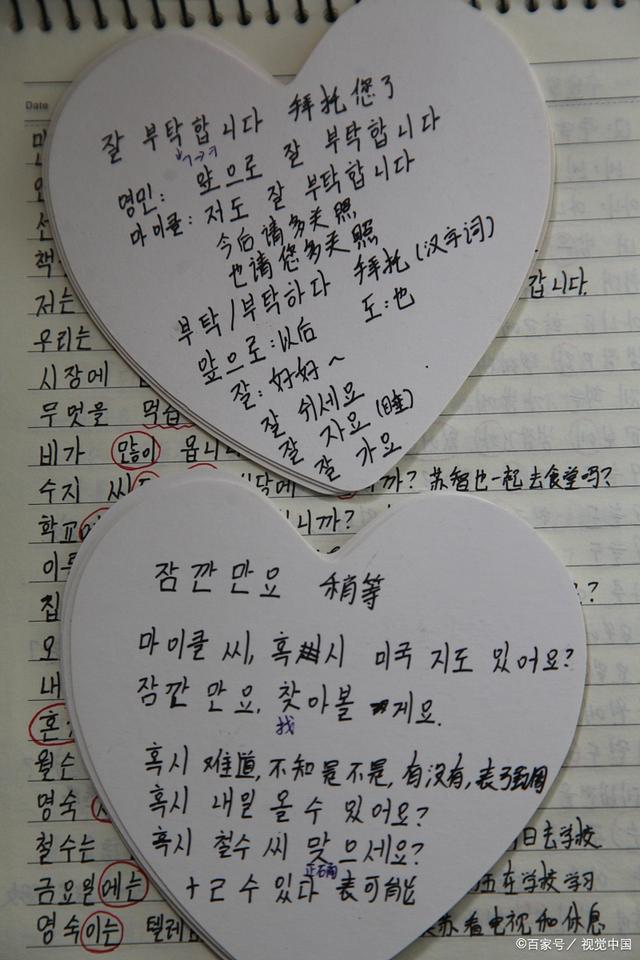 Date
잘 부탁합니다 拜托您了
명민: 앞으로 잘 부탁합니다
마이클: 저도 잘 부탁합니다
今后请多关照
也请您多关照
부탁/부탁하다 拜托(汉字词)
앞으로:以后 도:也
잘:好好~
잘 쉬세요
잘 자요 (睡)
잘 가요
저는 갑니다.
우리는
시장에
무멋을 먹습
비가 많이 옵니
수지 씨도 식당에 까? 苏智也一起去食堂吗?
학교에 니까?
이
집 ?
오
내
잠깐만요 稍等
마이클 씨, 혹시 미국 지도 있어요?
잠깐 만요, 찾아볼게요.
找
혹시 难道,不知是不是,有没有,表强调
혹시 내일 올 수 있어요?
혹시 철수 씨 맞으세요?
正确
+ㄹ 수 있다 表可能
월
명숙
철수는 日去学校
금요일에는 在学校学习
영숙이는 텔레 苏看电视和休息
©百家号/视觉中国